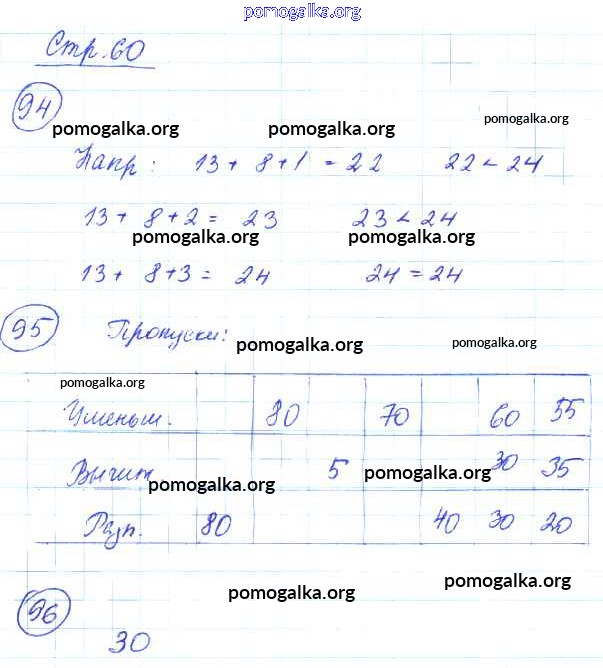 pomogalka.org
Стр. 60
94
pomogalka.org pomogalka.org pomogalka.org
Напр: 13 + 8 + 1 = 22 22 < 24
13 + 8 + 2 = 23 23 < 24
pomogalka.org pomogalka.org
13 + 8 + 3 = 24 24 = 24
95 Пропуски:
pomogalka.org pomogalka.org
pomogalka.org
Уменьш. 80 70 60 55
Вычит 5 30 35
pomogalka.org pomogalka.org
Разн. 80 40 30 20
pomogalka.org pomogalka.org
96
30